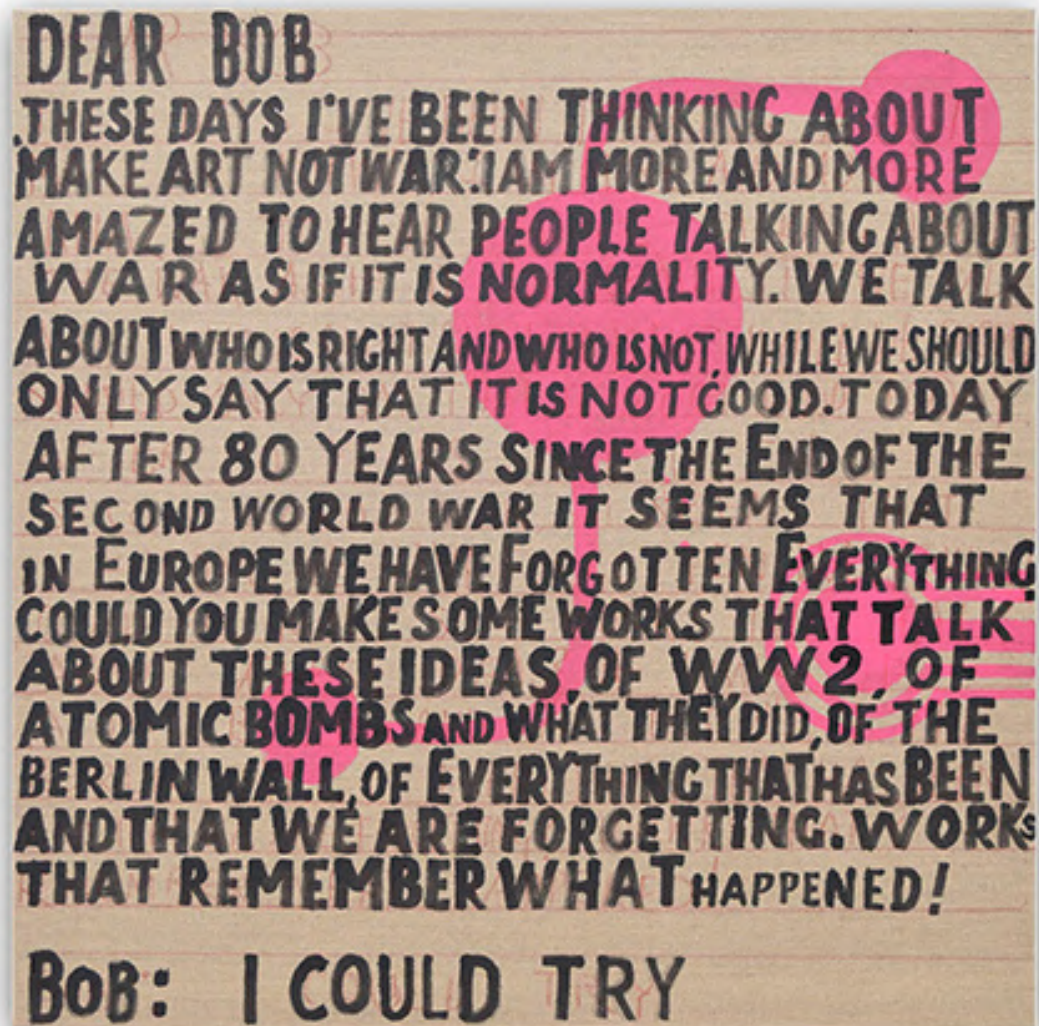 DEAR BOB
.THESE DAYS I'VE BEEN THINKING ABOUT
MAKE ART NOT WAR.'I AM MORE AND MORE
AMAZED TO HEAR PEOPLE TALKING ABOUT
WAR AS IF IT IS NORMALITY. WE TALK
ABOUT WHO IS RIGHT AND WHO IS NOT, WHILE WE SHOULD
ONLY SAY THAT IT IS NOT GOOD. TODAY
AFTER 80 YEARS SINCE THE END OF THE
SECOND WORLD WAR IT SEEMS THAT
IN EUROPE WE HAVE FORGOTTEN EVERYTHING.
COULD YOU MAKE SOME WORKS THAT TALK
ABOUT THESE IDEAS, OF WW2, OF
ATOMIC BOMBS AND WHAT THEY DID, OF THE
BERLIN WALL, OF EVERYTHING THAT HAS BEEN
AND THAT WE ARE FORGETTING. WORKS
THAT REMEMBER WHAT HAPPENED!
BOB: I COULD TRY